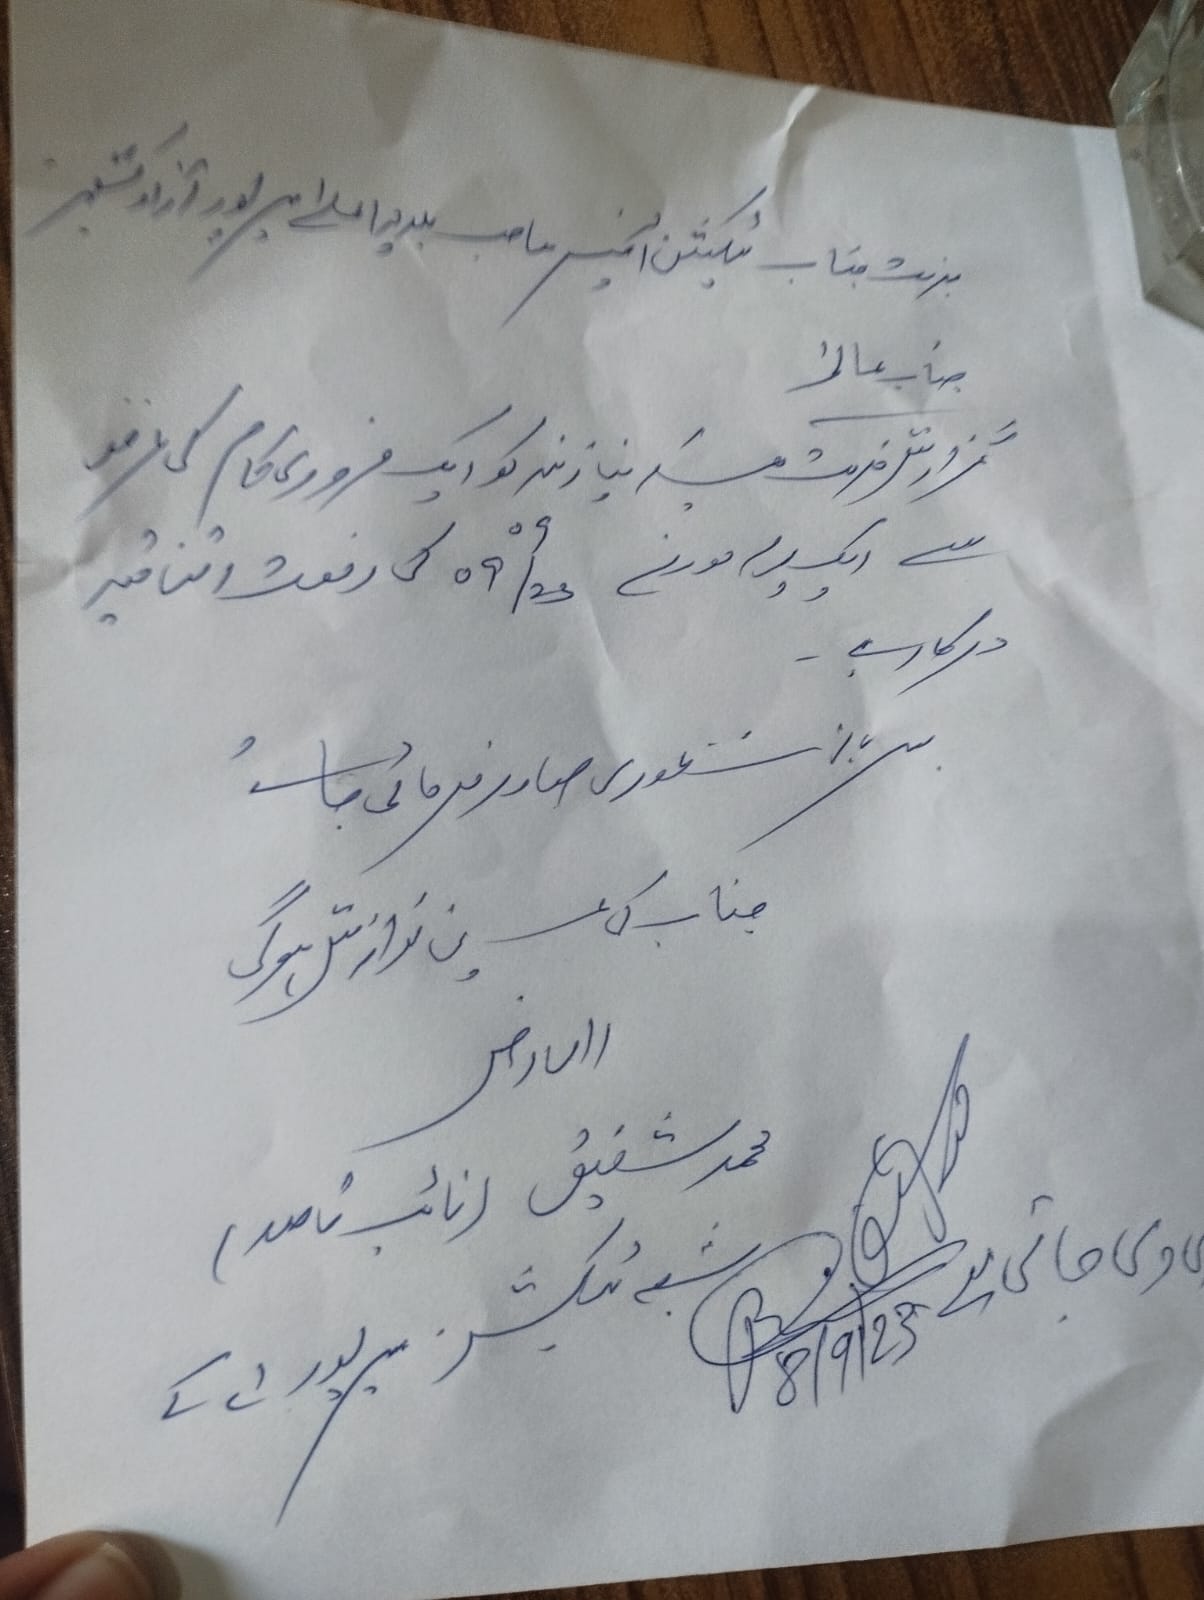 بخدمت جناب ٹیکیشن آفیسر صاحب بلدیہ اعلیٰ میرپور آزاد کشمیر
جناب عالی!
گزارش خدمت ہیکہ نیازمند کو ایک ضروری کام کی غرض
سے ایک یوم مورخہ 09/09/23 کی رخصت اتفاقیہ
درکار ہے۔
منظوری صادر فرمائی جائے
جناب کی عین نوازش ہوگی
العارض
محمد شفیق (نائب قاصد)
شعبہ ٹیکیشن میرپور اے کے
دی جاتی ہے
8/9/23